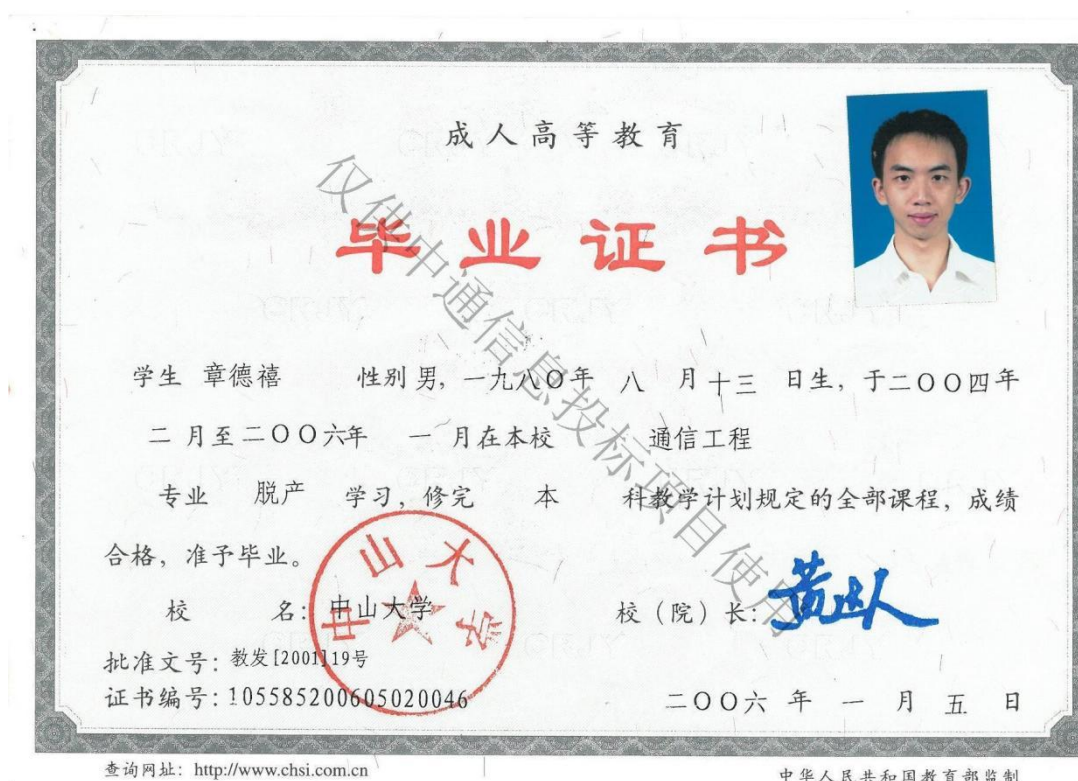 成人高等教育
毕业证书
学生 章德禧 性别 男，一九八〇年 八 月 十三 日生，于二〇〇四年
二 月至二〇〇六年 一 月在本校 通信工程
专业 脱产 学习，修完 本 科教学计划规定的全部课程，成绩
合格，准予毕业。
校 名：中山大学 校（院）长：黄达人
批准文号：教发[2001]19号
证书编号：105585200605020046 二〇〇六 年 一 月 五 日
查询网址：http://www.chsi.com.cn 中华人民共和国教育部监制
仅供中通信息投标项目使用
中山大学